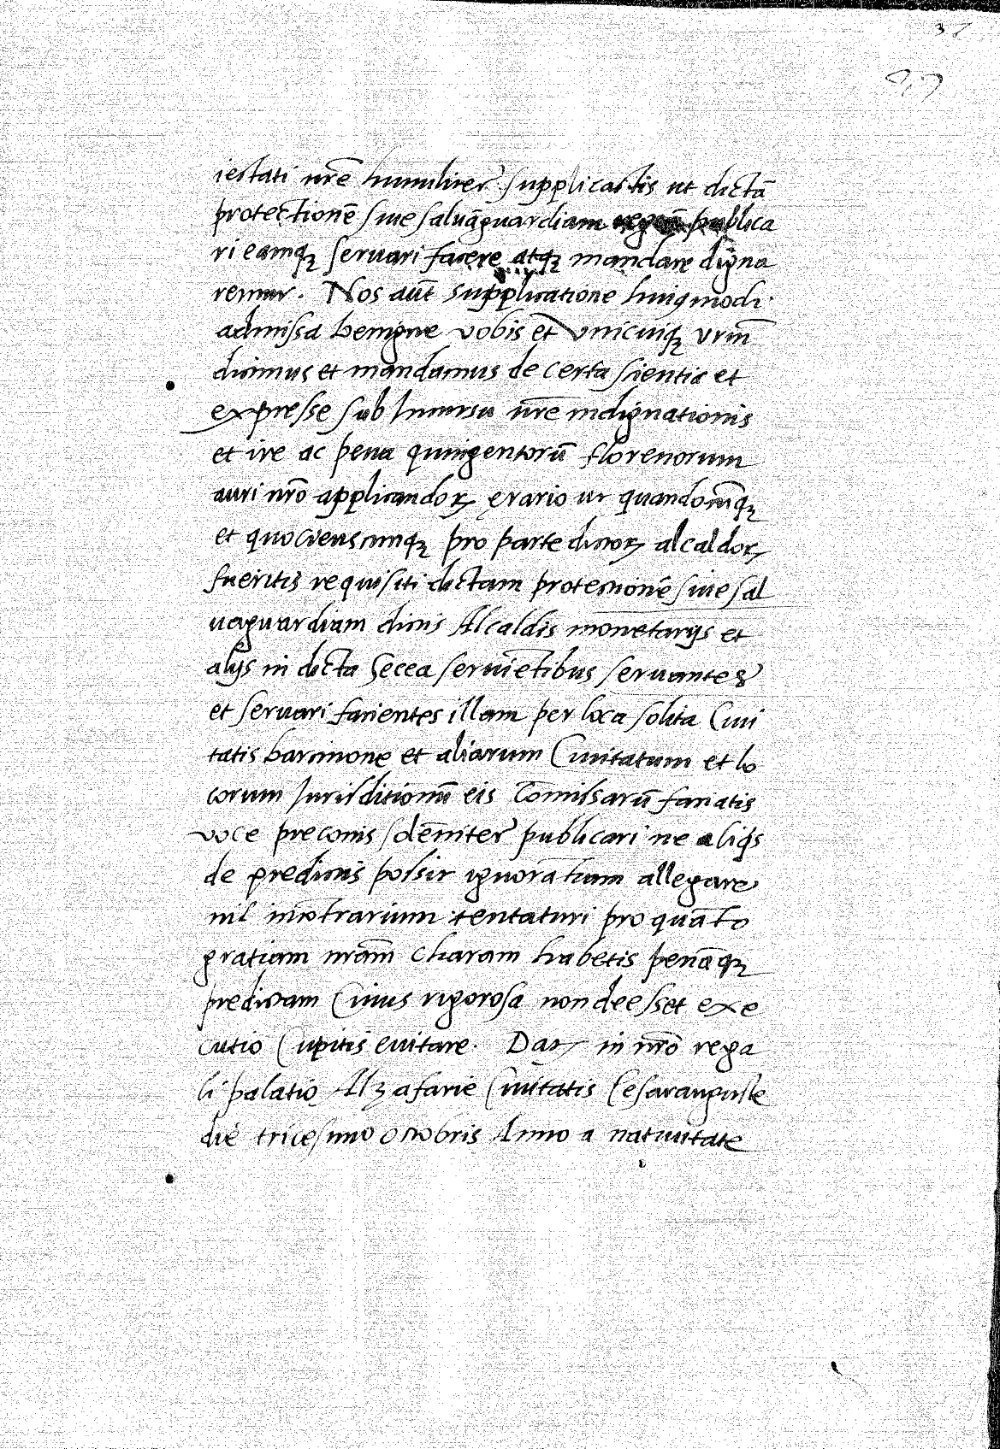 iestati nr̃e humiliter supplicastis ut dictã
protectionẽ siue saluãguardiam publica
ri eamqꝫ seruari facere atqꝫ mandare digna
remur. Nos aut̃ supplicatione huiꝰmodi
admissa benigne vobis et vnicuiqꝫ vrũm
dicimus et mandamus de certa scientia et
expresse sub Incursu nr̃e indignationis
et ire ac pena quingentorũ florenorum
auri nr̃o applicandoꝝ erario ut quandocũqꝫ
et quocienscunqꝫ pro parte dictoꝝ alcaldoꝝ
fueritis requisiti dictam protectionẽ siue sal
uaguardiam dictis Alcaldis monetarijs et
alijs in dicta Secca seruiẽtibus seruantes
et seruari facientes illam per loca solita Ciui
tatis barcinone et aliarum Ciuitatum et lo
corum Jurisditionũ eis Comissarũ faciatis
voce preconis solẽniter publicari ne aliqͥs
de predictis possit ignorãtiam allegare
nil incõtrarium tentaturi pro quãto
gratiam nrãm charam habetis penãqꝫ
predictam Cuius rigorosa non deesset exe
cutio Cupitis euitare. Datꝝ in nr̃o rega
li palatio Alꝫafarie Ciuitatis Cesarauguste
die tricesimo octobris Anno a natiuitate